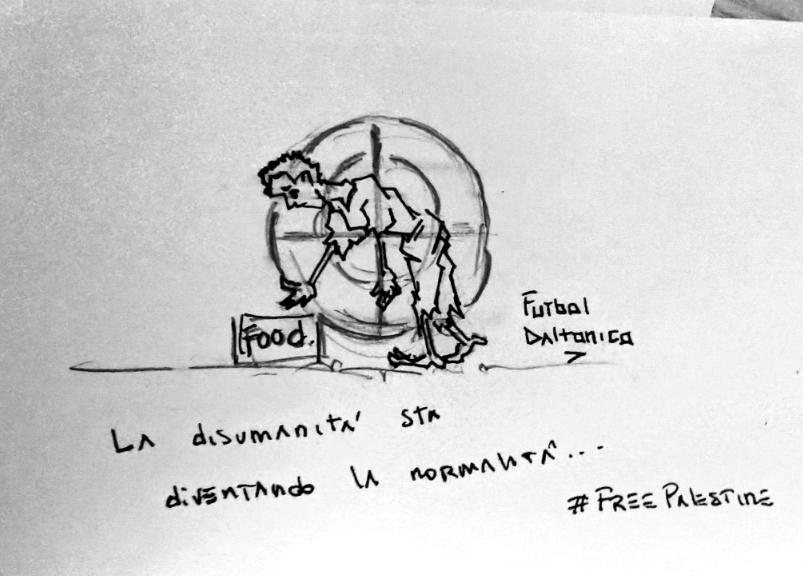 Food.
Futbol
Daltonica
La disumanità sta
diventando la normalità...
#FREE PALESTINE